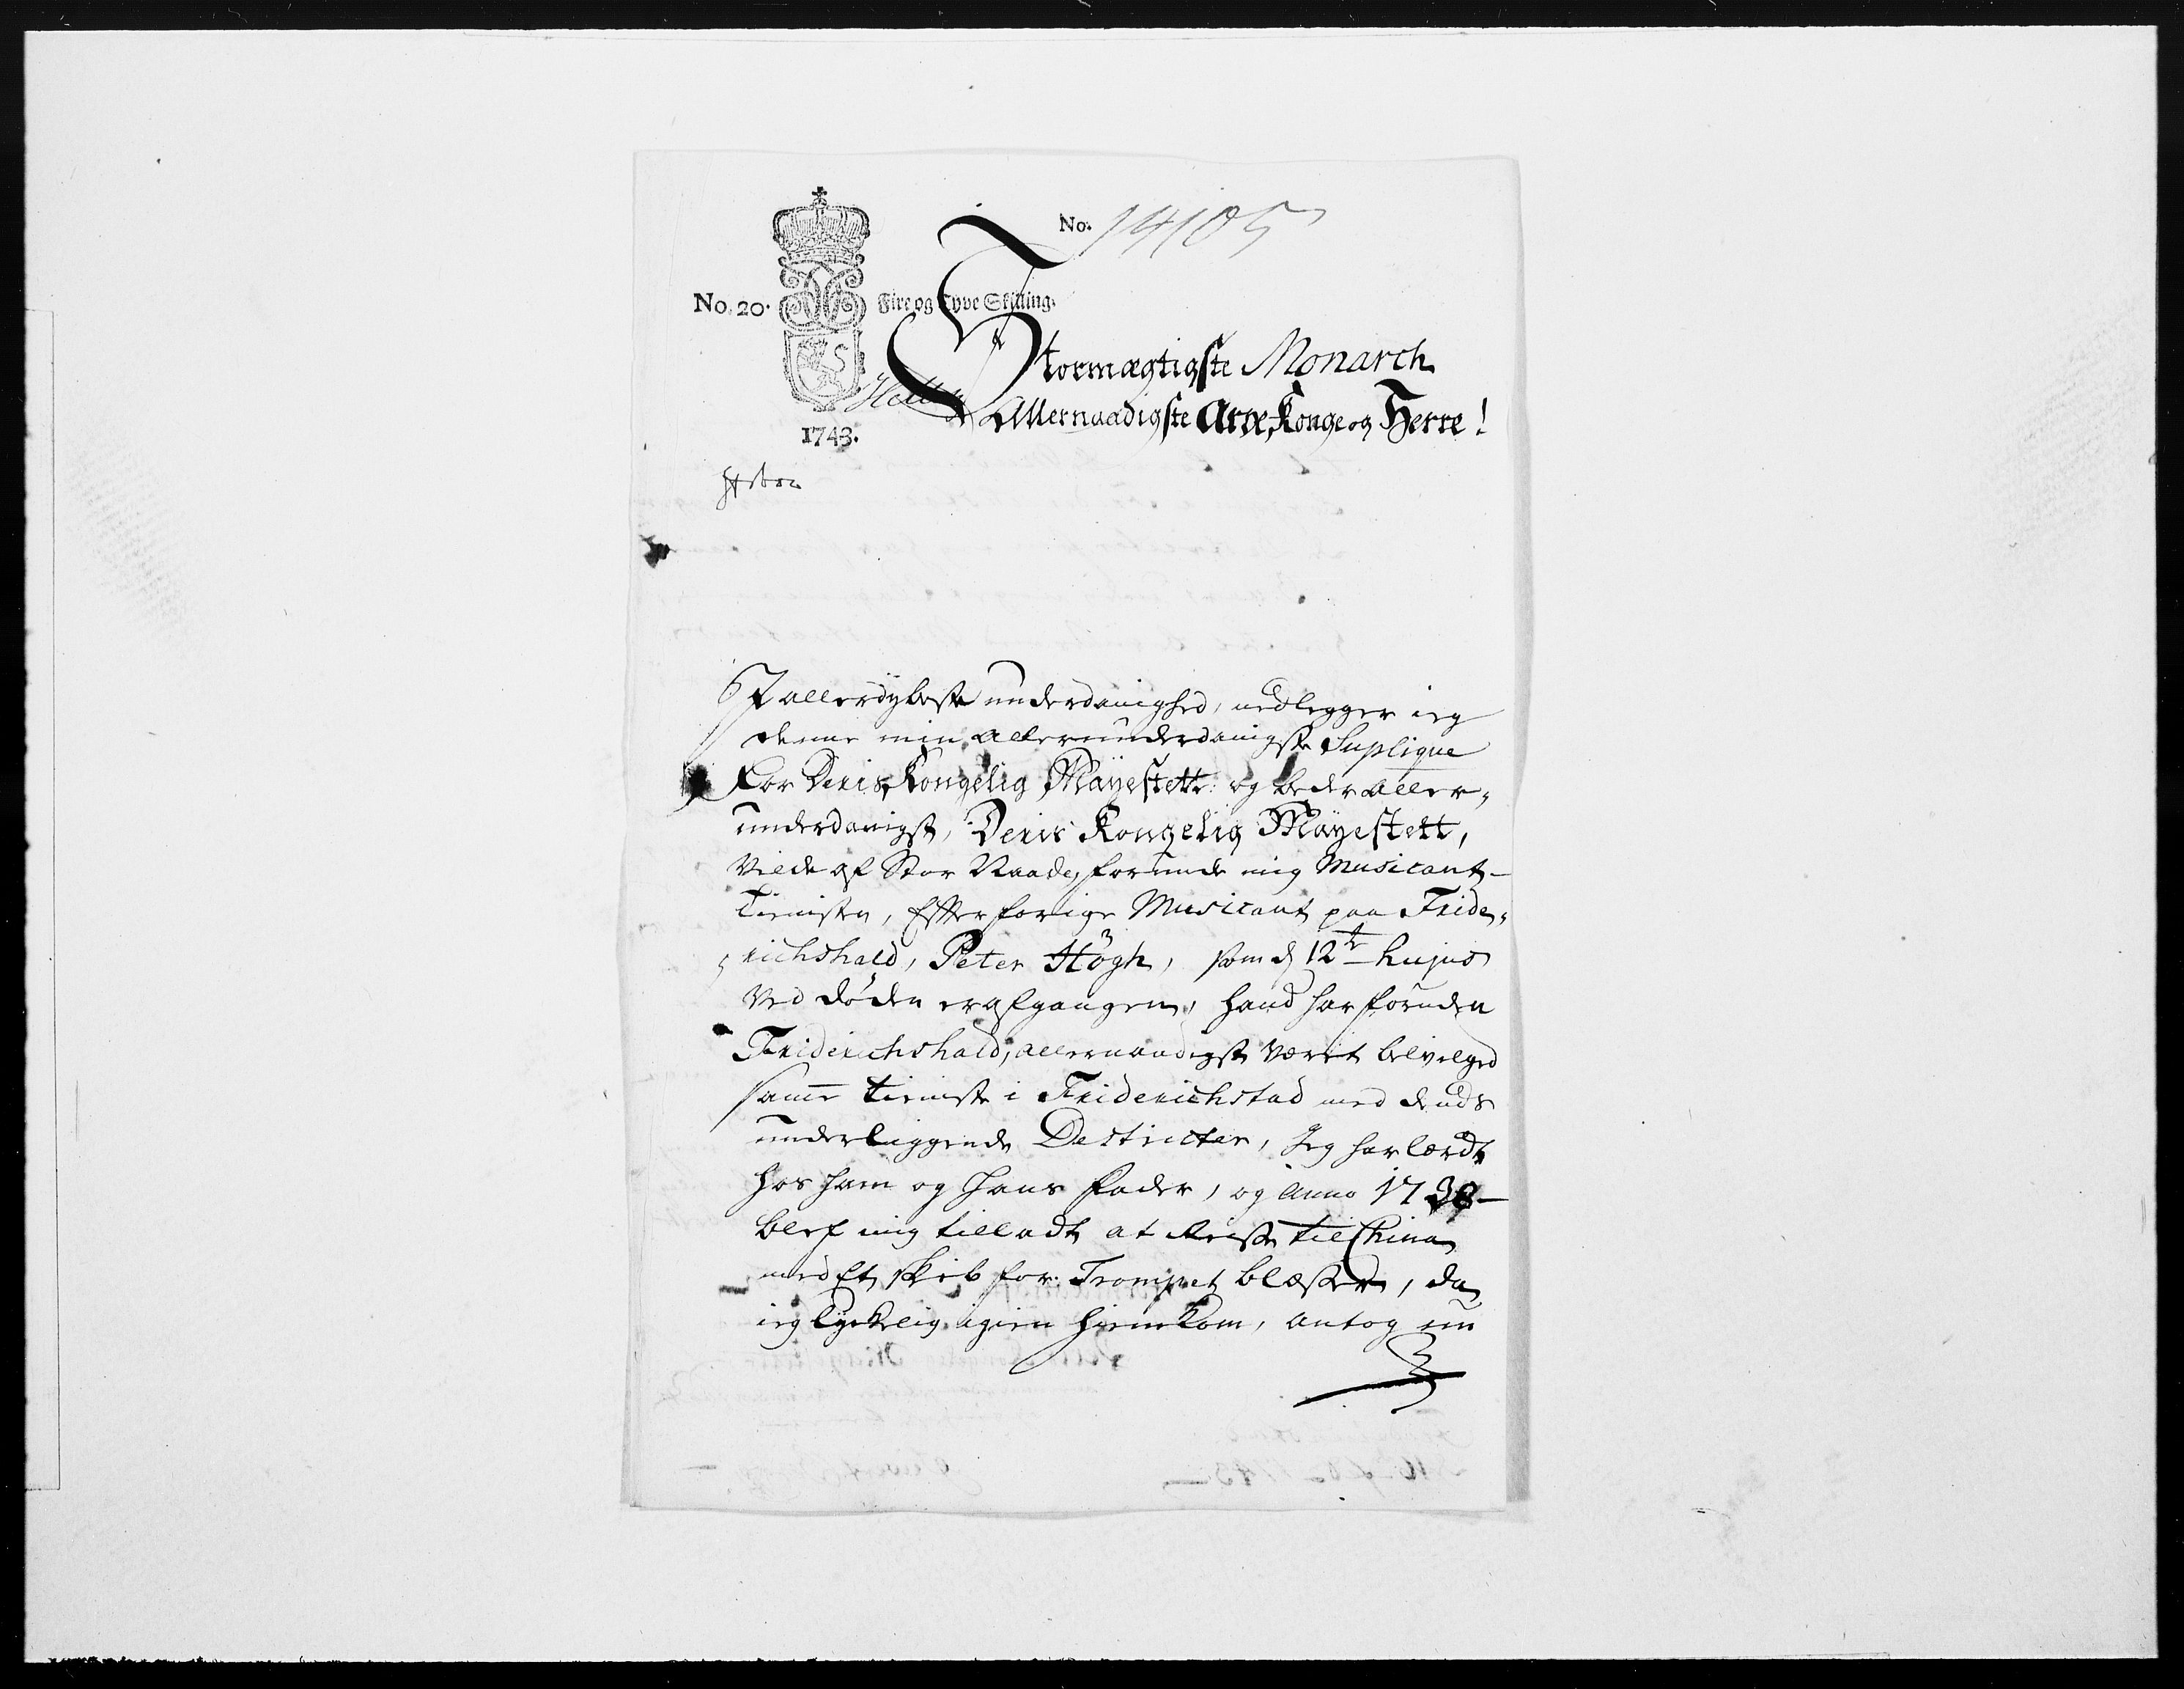 No. 14105
No. 20. Fire og Tyve Skilling.
Stormægtigste Monarch
Allernaadigste Arve Konge og Herre!
1743.
I allerdybeste underdanighed, nedlegger ieg
denne min allerunderdanigste Suplique
For Deris Kongelig Mayestett: og beder aller-
underdanigst, Deris Kongelig Mayestett,
Vilde af Stor Naade, forunde mig Musicant-
Tienisten, Effter forige Musicant paa Fride-
richshald, Peter Högh, som d 12te hujus
Ved døden er afgangen, hand har foruden
Friderichshald, allernaadigst Værit bevilged
samme tieniste i Friderichstad med dends
underliggende Destricter, Jeg har lærdt
hos ham og hans fader, og Anno 1738-
blef mig tilladt at Reise til China
med Et Skib for Trompet blæsser, da
ieg lyckelig igien hiemkom, antog nu